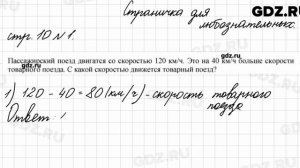 Страничка для
любознательных.
стр. 10 № 1.
Пассажирский поезд двигается со скоростью 120 км/ч. Это на 40 км/ч больше скорости
товарного поезда. С какой скоростью движется товарный поезд?
1) 120 - 40 = 80 (км/ч) - скорость товарного
поезда
Ответ:
GDZ.RU
GDZ.RU
gdz.ru
gdz.ru
gdz.ru
GDZ.RU